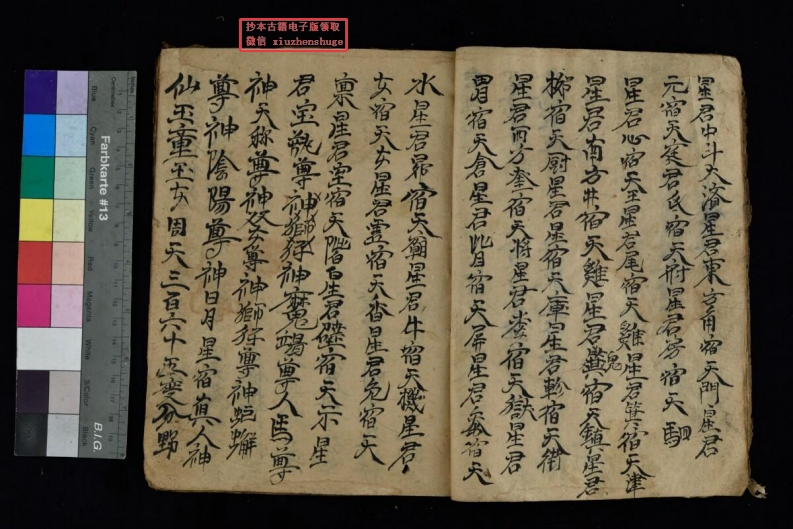 抄本古籍电子版领取
微信 xiuzhenshuge
星君中斗大濟星君東方角宿天門星君
元宿天庭君氐宿天府星君房宿天駟
星君心宿天王星君尾宿天雞星君箕宿天津
星君南方井宿天雞星君鬼宿天鎮星君
柳宿天厨星君星宿天庫星君軫宿天街
星君西方奎宿天將星君婁宿天獄星君
胃宿天倉星君昴宿天屏星君宿天
水星君 宿天 星君牛宿天機星君
女宿天女星君虛宿天 星君危宿天
禀星君室宿天 星君壁宿天 星
君 尊神獅 神魔竭尊人馬尊
神天称尊神 尊神獅 尊神
尊神陰陽尊神日月星宿真人神
仙玉童玉女周天三百六十 分野
Farbkarte #13
B.I.G.
Blue
Cyan
Green
Yellow
Red
Magenta
White
Black